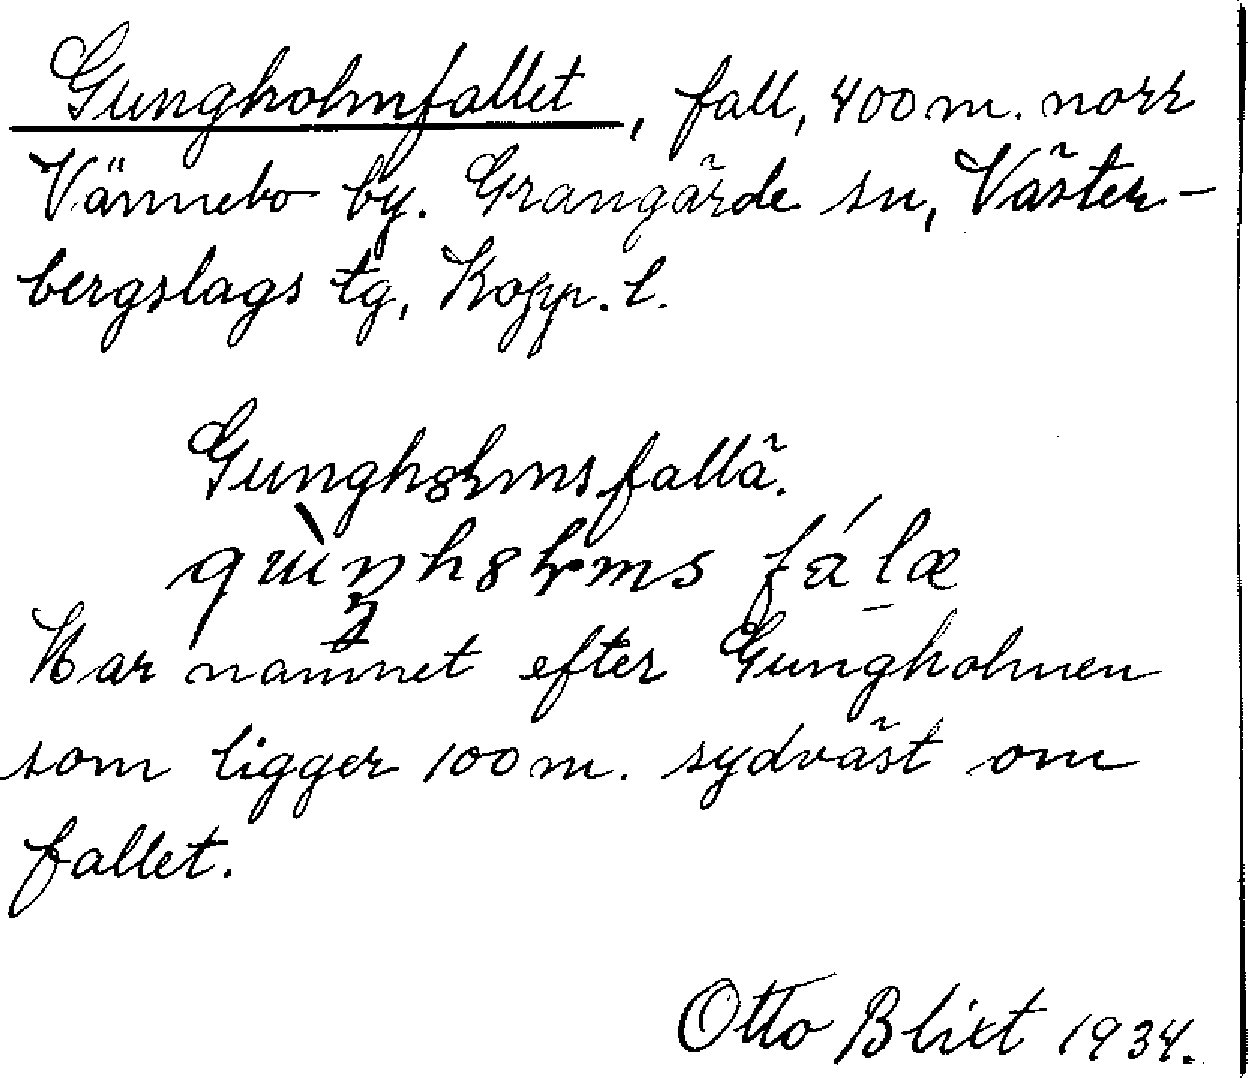 Gungholmfallet, fall, 400 m. norr
Vännebo by. Grangärde sn, Väster-
bergslags tg, Kopp. l.
Har namnet efter Gungholmen
som ligger 100 m. sydväst om
fallet.
Otto Blixt 1934.